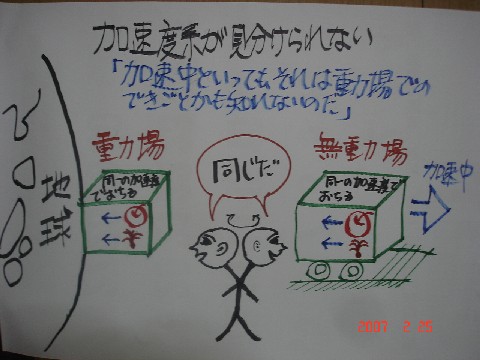 加速度系が見分けられない
「加速中といってもそれは重力場での
できごとかも知れないのだ」
重力場
同一の加速度
でおちる
地球
同じだ
無重力場
同一の加速度で
おちる
加速中
2007 2 25